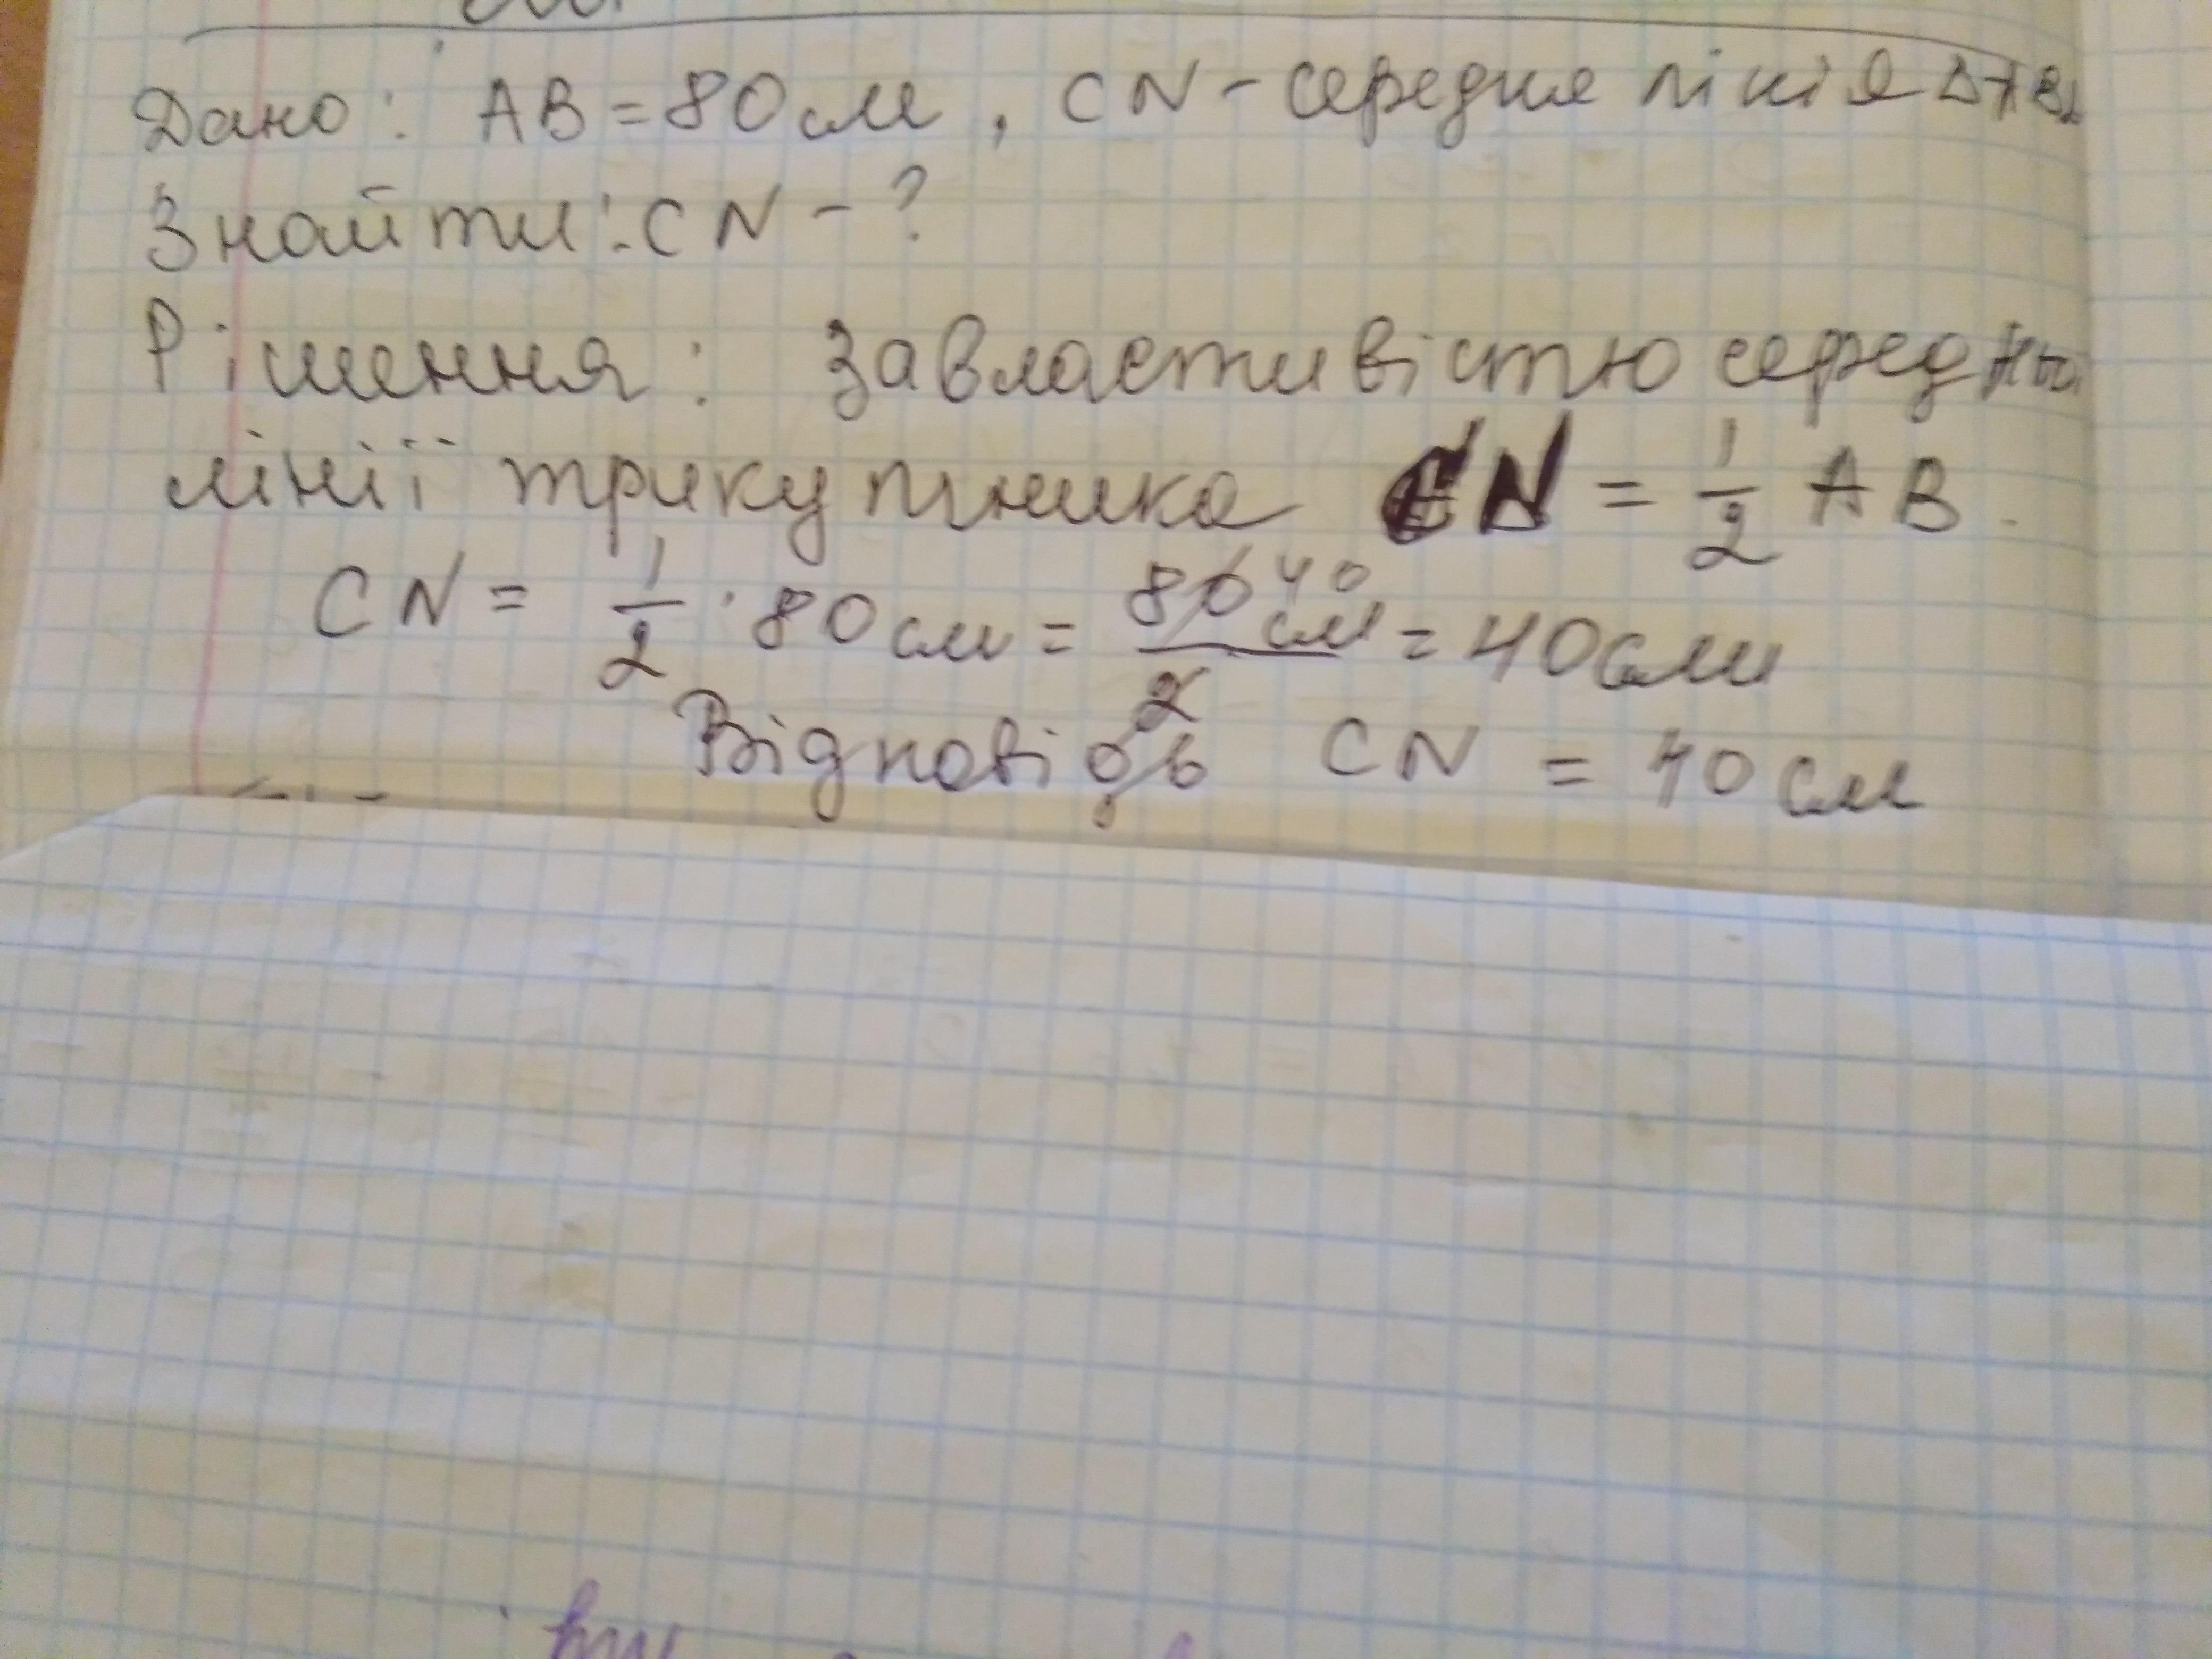 Дано: AB = 80 см, CN - середня лінія Δ AB
Знайти: CN - ?
Рішення: За властивістю середньої
лінії трикутника CN = 1/2 AB.
CN = 1/2 · 80 см = 80 40 см / 2 = 40 см
Відповідь CN = 40 см